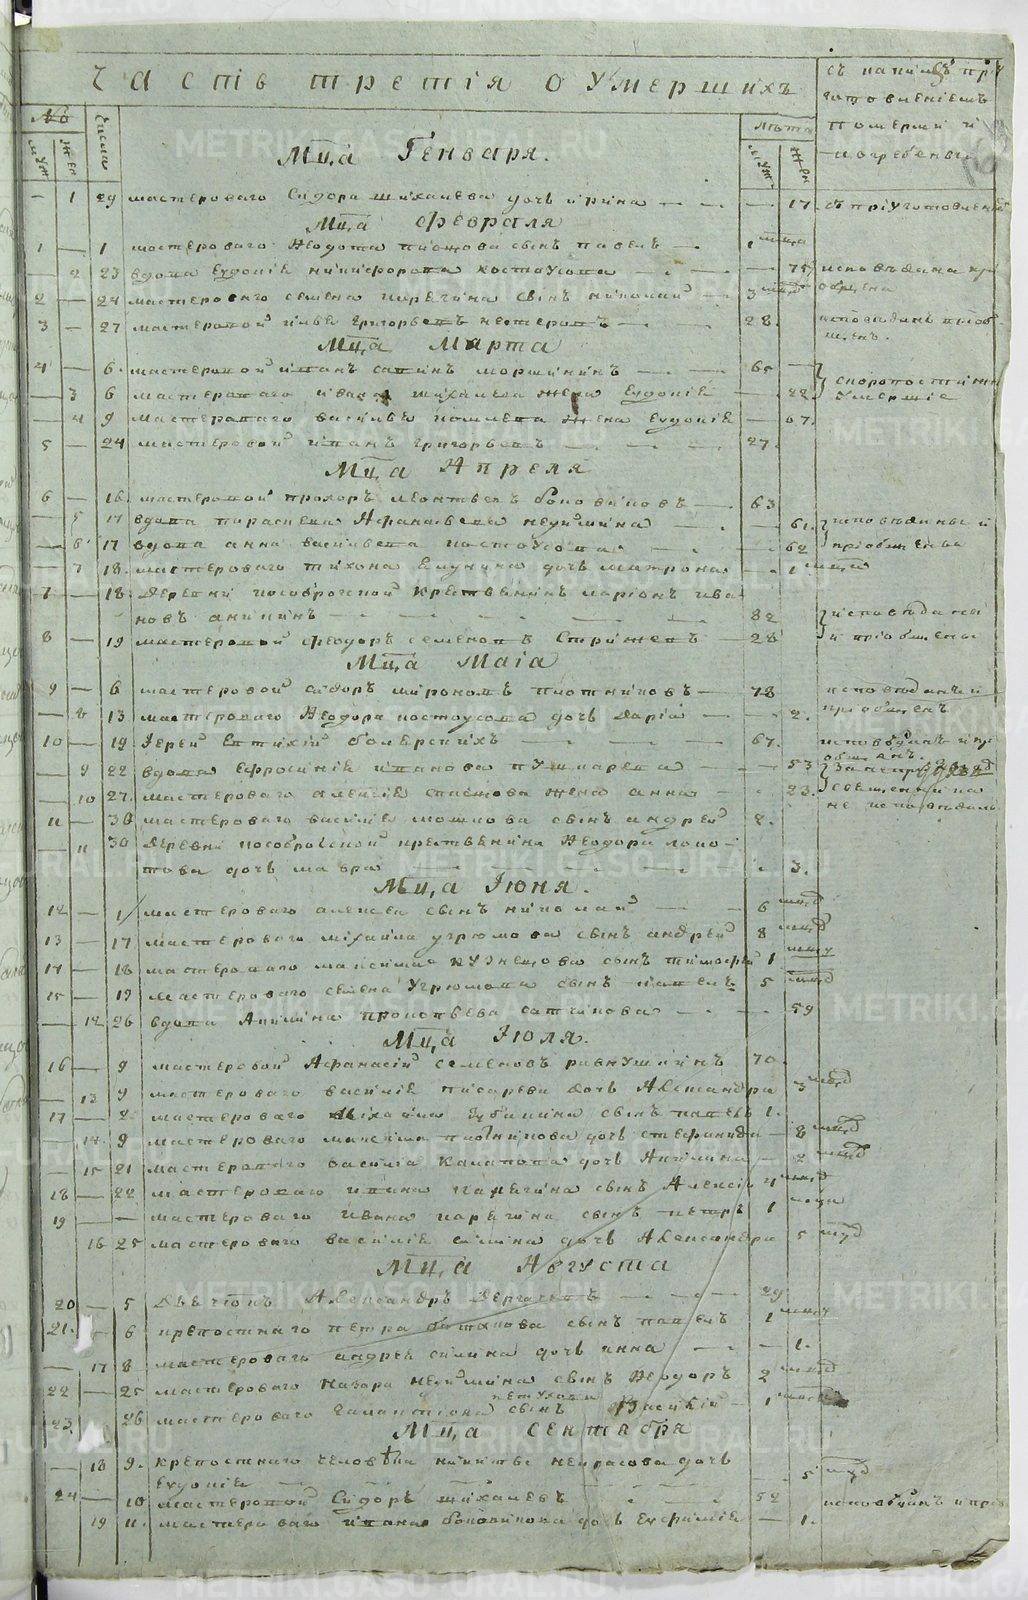 Часть третія о умершихъ
съ какимъ при
готовленіемъ
померли и
погребены
№
муж
жен
число
лѣта
муж
жен
Мца Генваря.
— 1 29 мастероваго Сидора Михалева дочь Ирина — 17. съ пріуготовленіе
Мца Февраля
1 — 1 мастероваго Ѳеодота сынъ Павелъ — 1 мца
— 2 23 вдова Евдокія Никифорова Костоусова — 75 исповѣдана прі
общена
2 — 24 мастероваго Семена Карегина сынъ Николай — 3 мцд
3 — 27 мастеровой Илья Григорьевъ Нестеровъ — 28. исповѣданъ приоб
щенъ.
Мца Марта
4 — 6. мастеровой Иванъ Савинъ Моршининъ — 65 —
скоропостижн
— 3 6 мастероваго Ивана Михалева жена Евдокія — 22. умершіе
— 4 9 мастероваго Василья жена Евдокія — 67.
5 — 24 мастеровой Иванъ Григорьевъ — 27.
Мца Апреля
6 — 16. мастеровой Прохоръ Леонтьевъ Боковиковъ — 63
— 5 17 вдова Параскева Афанасьева Неуймина — 61. исповѣданы и
— 6 17 вдова Анна Васильева Костоусова — 62 пріобщены
— 7 18. мастероваго Тихона дочь Матрона — 1 мца
7 — 18 деревни Кособродской крестьянинъ Ларіонъ Ива
новъ Аникинъ — 82 исповѣданы
8 — 19 мастеровой Феодоръ Семеновъ Стрижевъ — 28 и пріобщены
Мца Маіа
9 — 6 мастеровой Сидоръ Мироновъ Плотниковъ — 78 исповѣданъ и
пріобщенъ
— 8 13 мастероваго Ѳеодора Костоусова дочь Дарія — 2.
10 — 19 Іерей Евтихій — 67. исповѣданъ и пр
общенъ.
— 9 22 вдова Ефросинія Иванова Пушкарева — 53
— 10 27. мастероваго Алексія жена Анна — 23. священника
не исповѣданы
11 — 30 мастероваго Василія сынъ Андрей 8.
— 11 30 деревни Кособродской крестьянина Ѳеодора Лопо-
това дочь Мавра — 3.
Мца Іюня.
12 — 1 мастероваго Алексея сынъ Николай — 6 мцд
13 — 17 мастероваго Михаила Угрюмова сынъ Андрей 8 мцд
14 — 18 мастероваго Максима Кузнецова сынъ Тимофей 1 мцу
15 — 19 мастероваго Семена Угрюмова сынъ Павелъ 5 мцд
— 12 26 вдова Акилина Прокопьева — 59
Мца Іюля.
16 — 9 мастеровой Афанасій Семеновъ 70.
— 13 9 мастероваго Василія Писарева дочь Алеѯандра 3 мцд
17 — 2 мастероваго Михайла Бубикина сынъ Павелъ 1.
— 14. 9 мастероваго Максима Плотникова дочь Стефанида — 8 мцд
— 15 21 мастероваго Василіа дочь Акилина — 2 мцд
18 — 22 мастероваго Ивана Карегина сынъ Алексій 4 мцд
19 — — мастероваго Ивана Карегина сынъ Петръ 1 мца
16 25 мастероваго Василія Силина дочь Алеѯандра 5 мцд
Мца Августа
20 — 5 дьячокъ Алеѯандръ Дергачевъ — 29
21. — 6 крепостнаго Петра сынъ Павелъ 1 мцу
— 17 8 мастероваго Андрея Силина дочь Анна — 1.
22 — 25 мастероваго Назара Неуймина сынъ Ѳеодоръ 2 мцд
23. 26 мастероваго Галактіона Петухова сынъ Василій — 1
Мца Сентября
— 18 9. крепостнаго человѣка Никиты Некрасова дочь
Евдокія — 5 мцд
24 — 10 мастеровой Сидоръ Михалевъ 52 исповѣданъ и прі
19 11. мастероваго Ивана Боковикова дочь Евфимія — 1.